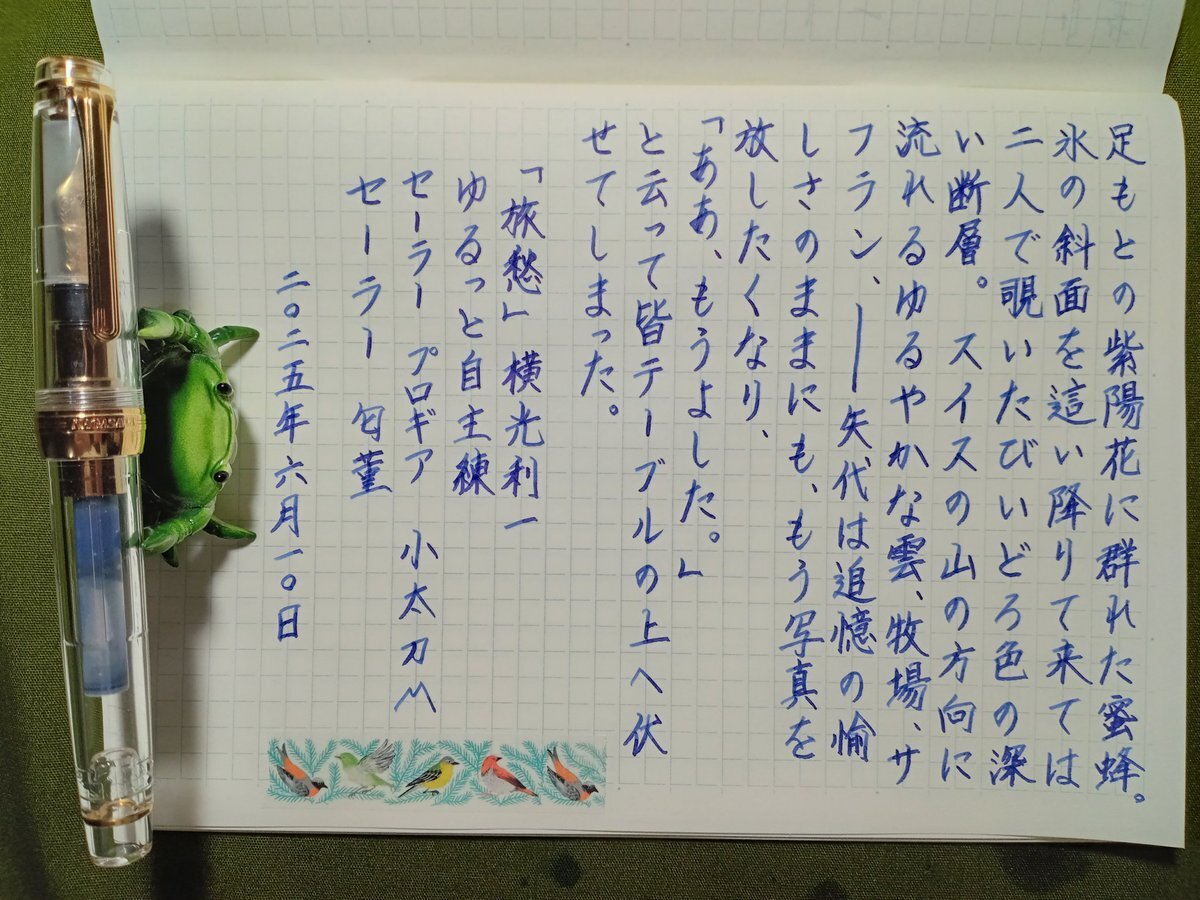 足もとの紫陽花に群れた蜜蜂。
氷の斜面を這い降りて来ては
二人で覗いたびいどろ色の深
い断層。スイスの山の方向に
流れるゆるやかな雲、牧場、サ
フラン、――矢代は追憶の愉
しさのままにも、もう写真を
放したくなり、
「ああ、もうよした。」
と云って皆テーブルの上へ伏
せてしまった。
「旅愁」横光利一
ゆるっと自主練
セーラー プロギア 小太刀M
セーラー 匂菫
二〇二五年六月一〇日